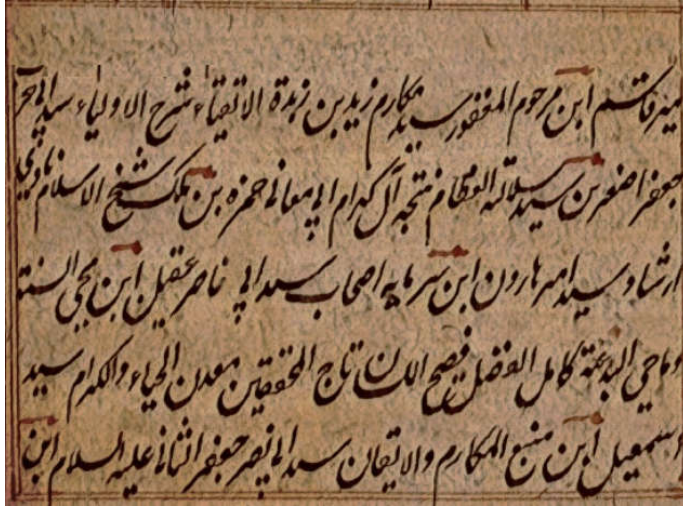 میر قاسم ابن مرحوم المغفور سید مکارم زید بن زبدة الاتقیاء شرح الاولیاء سید ابی
جعفر اصغر بن سید سلالة العظام نتجه آل کرام ابی معانی حمزه بن ملک شیخ الاسلام
ارشاد سید امیر هارون ابن سر مایه اصحاب سید ابی ناصر عقیل ابن محیی السنة
و ماحی البدعة کامل الفضل فصیح اللسان تاج المحققین معدن الحیاء والکرام سید
اسمعیل ابن منبع المکارم والایقان سید ابی نصر جعفر الثانی علیه السلام ابن